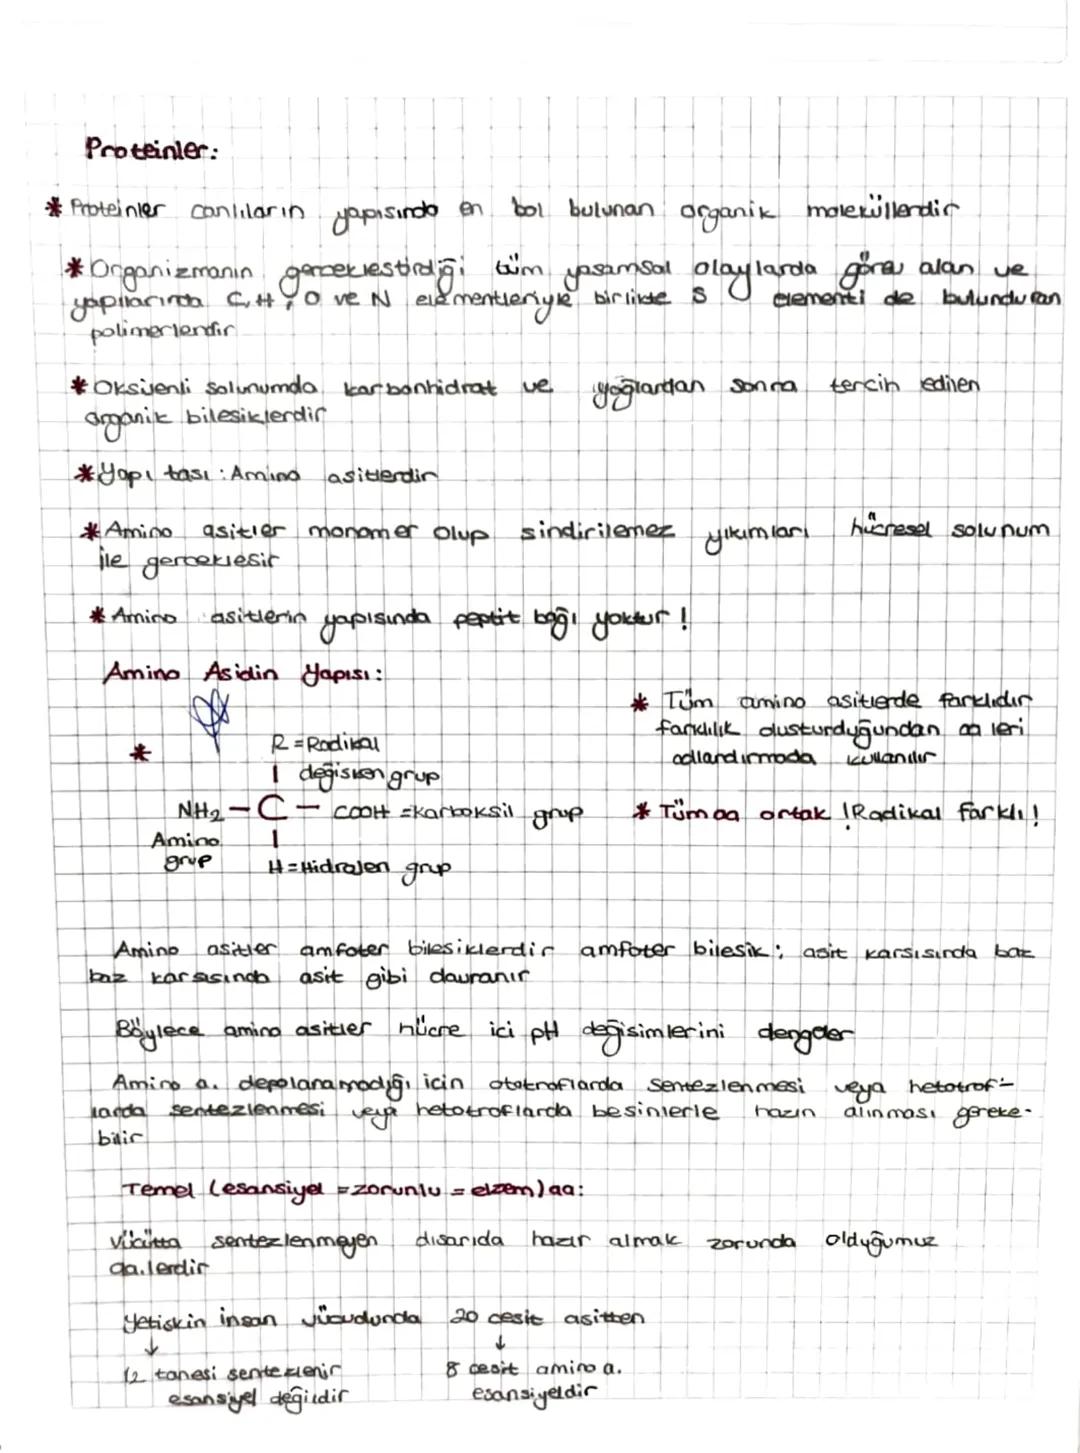 Proteinler:
* Proteinler canlıların yapısında en bol bulunan organik moleküllerdir
* Organizmanın gerceklestirdiği tüm yasamsal olaylarda görev alan ve
yapılarında C, H, O ve N elementleriyle birlikte S elementi de bulunduran
polimerlerdir
* Oksijenli solunumda karbonhidrat ve yağlardan sonra tercih edilen
organik bilesiklerdir
* Yapı tası : Amino asitlerdir
* Amino asitler monomer olup sindirilemez yıkımları hücresel solunum
ile gerceklesir
* Amino asitlerin yapısında peptit bağı yoktur !
Amino Asidin Yapısı:
* Tüm amino asitlerde farklıdır
farklılık olusturduğundan aa leri
adlandırmada kullanılır
*
R = Radikal
değisken grup
NH2 - C - COOH = karboksil grup
* Tüm aa ortak ! Radikal farklı !
Amino
grup
H = Hidrojen grup
Amino asitler amfoter bilesiklerdir amfoter bilesik ; asit karsısında baz
baz karsısında asit gibi davranır
Böylece amino asitler hücre ici pH değisimlerini dengeler
Amino a. depolanamadığı icin ototroflarda sentezlenmesi veya hetotrof-
larda sentezlenmesi veya hetotroflarda besinlerle hazır alınması gereke-
bilir
Temel (esansiyel = zorunlu = elzem) aa:
Vücutta sentezlenmeyen dısarıda hazır almak zorunda olduğumuz
aa.lerdir
Yetiskin insan vücudunda 20 cesit asitten
↓ ↓
12 tanesi sentezlenir 8 cesit amino a.
esansiyel değildir esansiyeldir